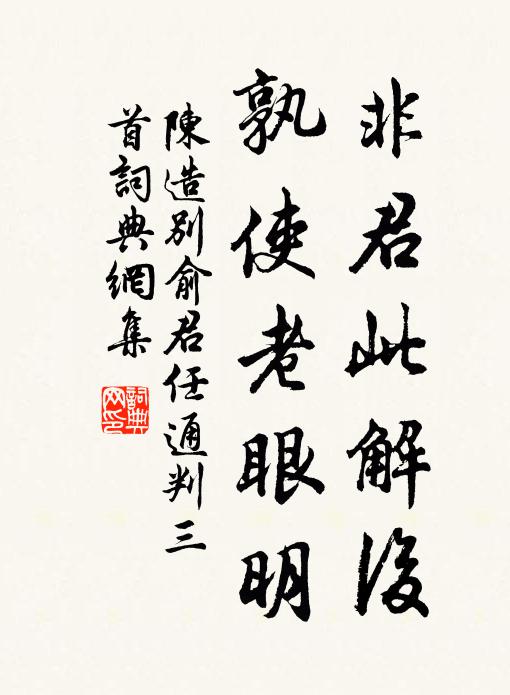 非君此解後
孰使老眼明
陳造別俞君任通判三
首詞典網集
詞典网印